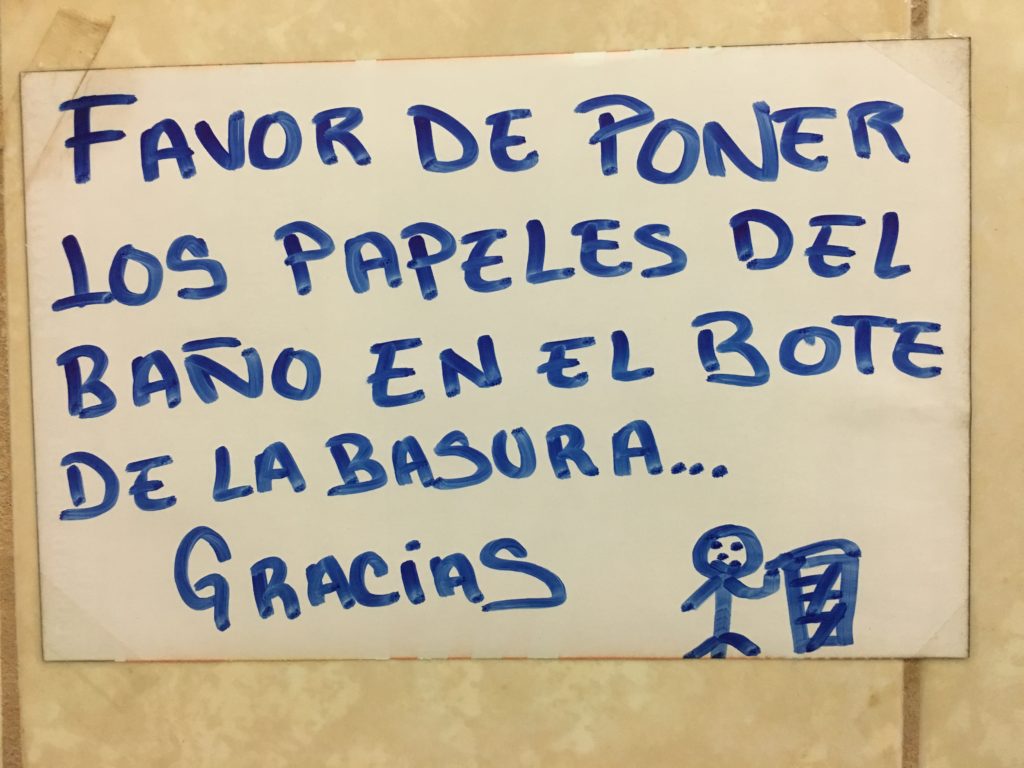 FAVOR DE PONER
LOS PAPELES DEL
BAÑO EN EL BOTE
DE LA BASURA...
GRACIAS